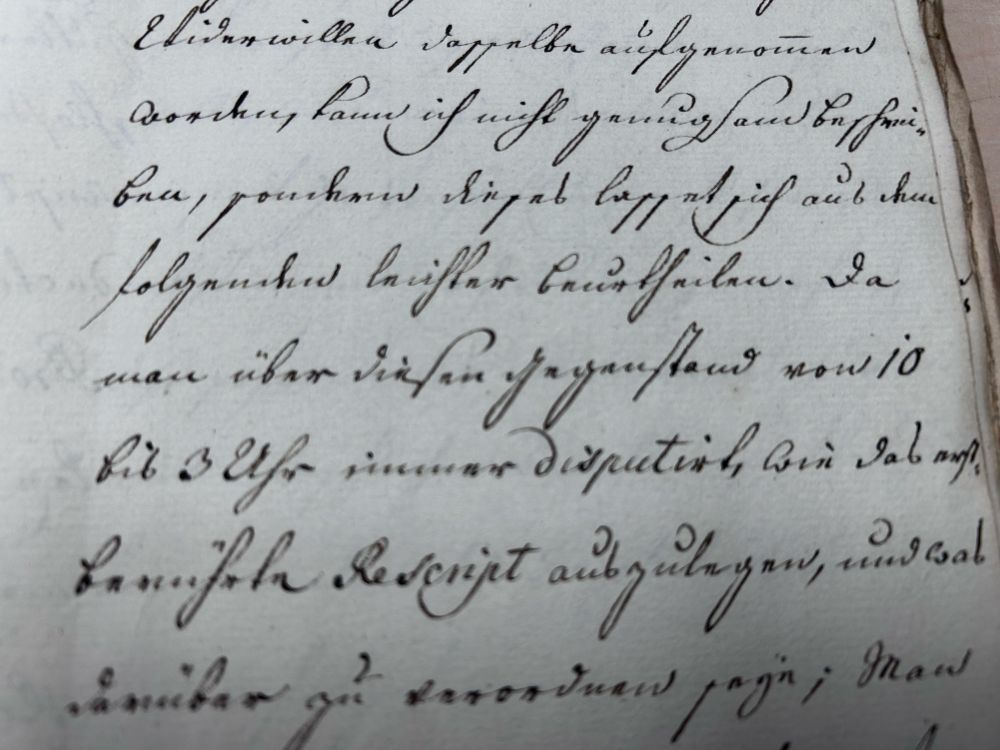 Widerwillen dasselbe aufgenommen
worden, kann ich nicht genugsam beschrei-
ben, sondern dieses lasset sich aus dem
folgenden leichter beurtheilen. Da
man über diesen Gegenstand von 10
bis 3 Uhr immer disputirt, wie das erst-
berührte Rescript auszulegen, und was
darüber zu verordnen seye; Man